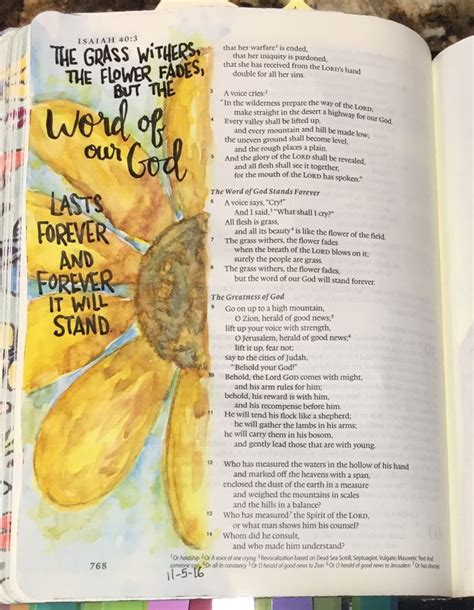 ISAIAH 40:3
THE GRASS WITHERS,
THE FLOWER FADES,
BUT THE
Word of
our God
LASTS
FOREVER
AND
FOREVER
IT WILL
STAND.
that her warfare¹ is ended,
that her iniquity is pardoned,
that she has received from the LORD's hand
double for all her sins.
3 A voice cries:²
"In the wilderness prepare the way of the LORD;
make straight in the desert a highway for our God.
4 Every valley shall be lifted up,
and every mountain and hill be made low;
the uneven ground shall become level,
and the rough places a plain.
5 And the glory of the LORD shall be revealed,
and all flesh shall see it together,
for the mouth of the LORD has spoken."
The Word of God Stands Forever
6 A voice says, "Cry!"
And I said,³ "What shall I cry?"
All flesh is grass,
and all its beauty⁴ is like the flower of the field.
7 The grass withers, the flower fades
when the breath of the LORD blows on it;
surely the people are grass.
8 The grass withers, the flower fades,
but the word of our God will stand forever.
The Greatness of God
9 Go on up to a high mountain,
O Zion, herald of good news;⁵
lift up your voice with strength,
O Jerusalem, herald of good news;⁶
lift it up, fear not;
say to the cities of Judah,
"Behold your God!"
10 Behold, the Lord GOD comes with might,
and his arm rules for him;
behold, his reward is with him,
and his recompense before him.
11 He will tend his flock like a shepherd;
he will gather the lambs in his arms;
he will carry them in his bosom,
and gently lead those that are with young.
12 Who has measured the waters in the hollow of his hand
and marked off the heavens with a span,
enclosed the dust of the earth in a measure
and weighed the mountains in scales
and the hills in a balance?
13 Who has measured⁷ the Spirit of the LORD,
or what man shows him his counsel?
14 Whom did he consult,
and who made him understand?
¹ Or hardship ² Or A voice of one crying ³ Revocalization based on Dead Sea Scroll, Septuagint, Vulgate; Masoretic Text And
someone says ⁴ Or all its constancy ⁵ Or O herald of good news to Zion ⁶ Or O herald of good news to Jerusalem ⁷ Or has directed
768
11-5-16